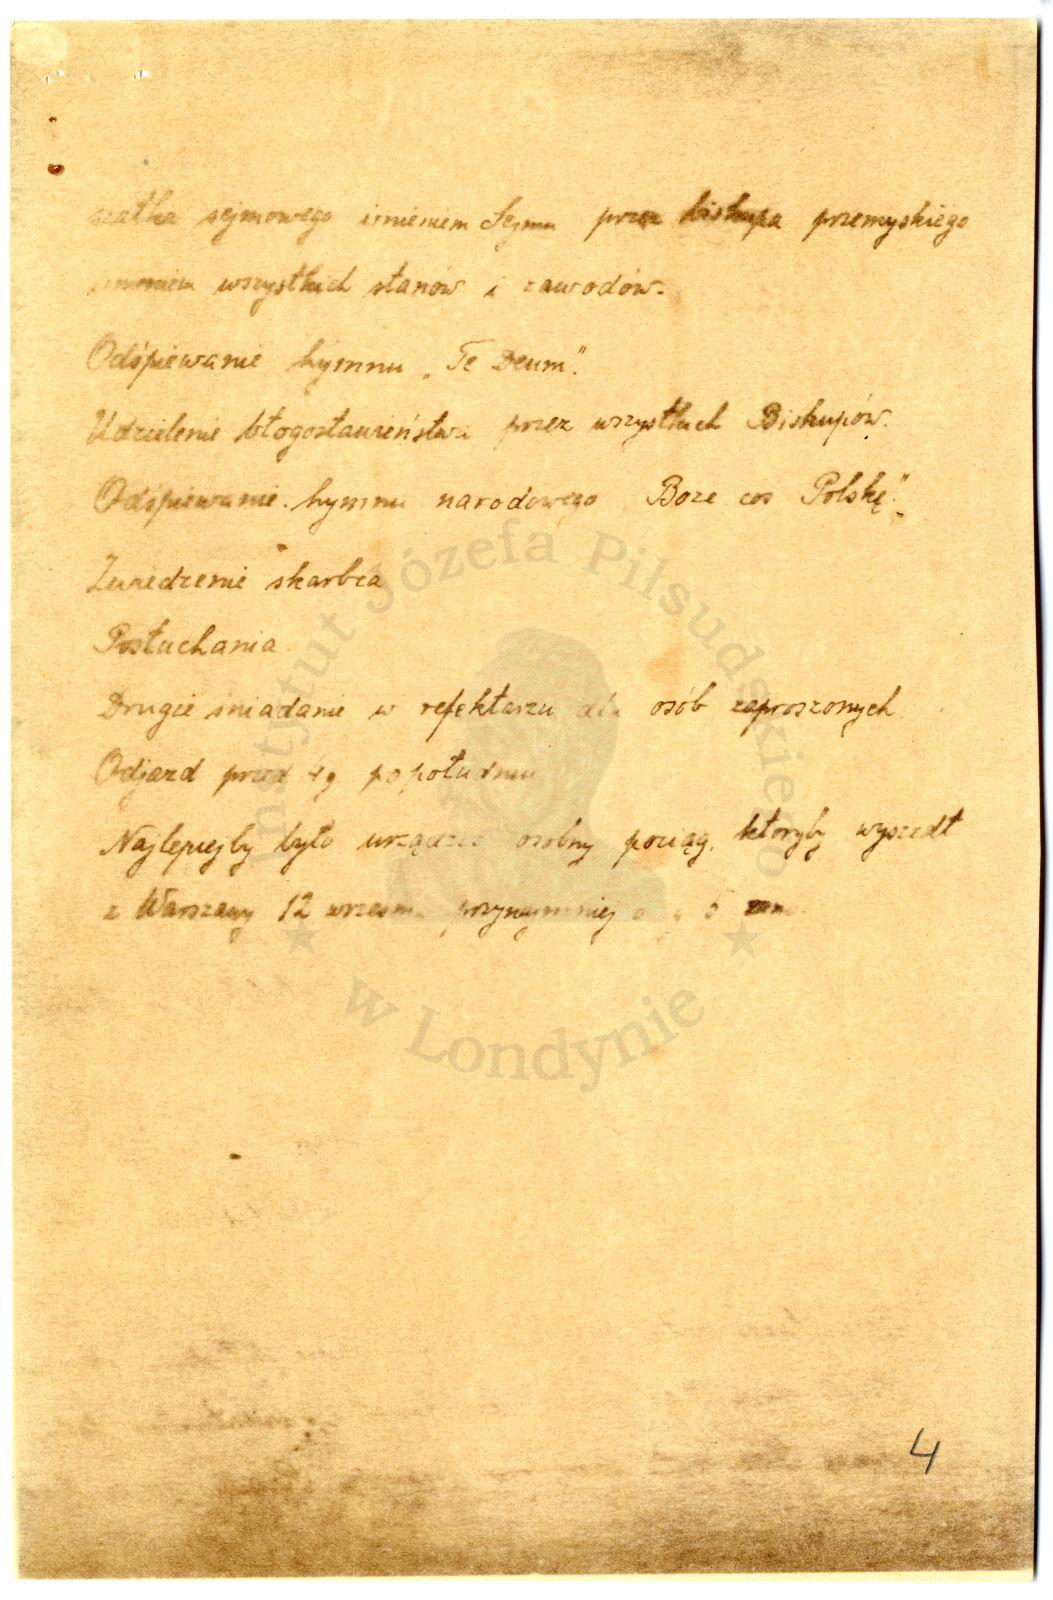 szałka sejmowego imieniem Sejmu przez biskupa przemyskiego
imieniem wszystkich stanów i zawodów.
Odśpiewanie hymnu „Te Deum".
Udzielenie błogosławieństwa przez wszystkich Biskupów.
Odśpiewanie hymnu narodowego Boze cos Polskę".
Zwiedzenie skarbca
Posłuchania
Drugie śniadanie w refektarzu dla osób zaproszonych
Odjazd przed 4g popołudniu
Najlepiejby było urządzić osobny pociąg, któryby wyszedł
z Warszawy 12 września przynajmniej
Instytut Józefa Piłsudskiego
w Londynie
4